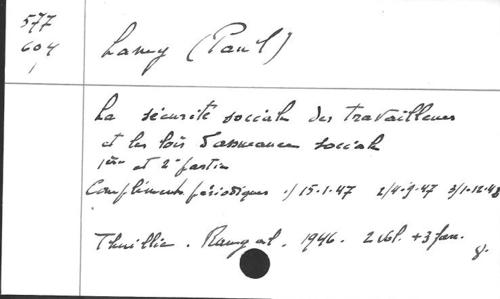 577
604
1
Lamy (Paul)
La sécurité sociale des travailleurs
et les lois d'assurances sociale
1ère et 2e partie
Compléments périodiques 1/ 15.1.47 2/4.9.47 3/1.12.48
Thuillier. 1946. 2 vol. + 3 fasc.
8°.